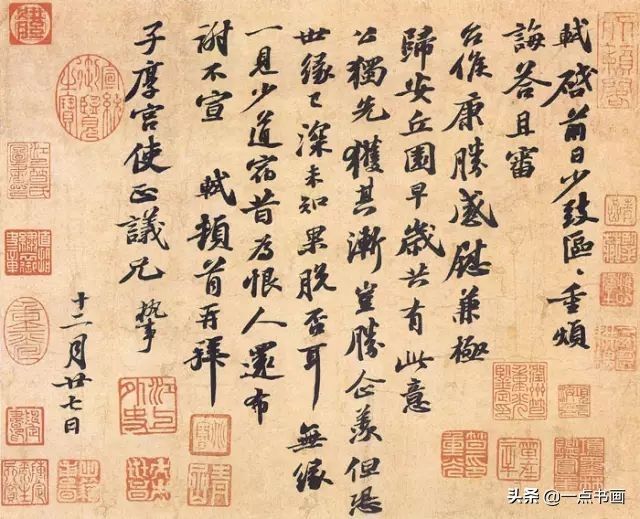 軾啓前日少致區〻重煩
誨答且審
台候康勝感慰兼極
歸安丘園早歲共有此意
公獨先獲其漸豈勝企羨但恐
世緣已深未知果脫否耳無緣
一見少道宿昔為恨人還布
謝不宣 軾頓首再拜
子厚宮使正議兄 執事
十二月廿七日
江上外史
头条 @一点书画